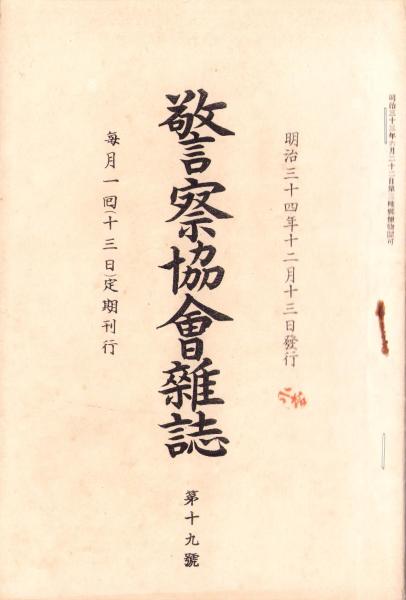 明治三十三年六月二十二日第三種郵便物認可
明治三十四年十二月十三日發行
警察協會雜誌
第十九號
每月一回(十三日)定期刊行